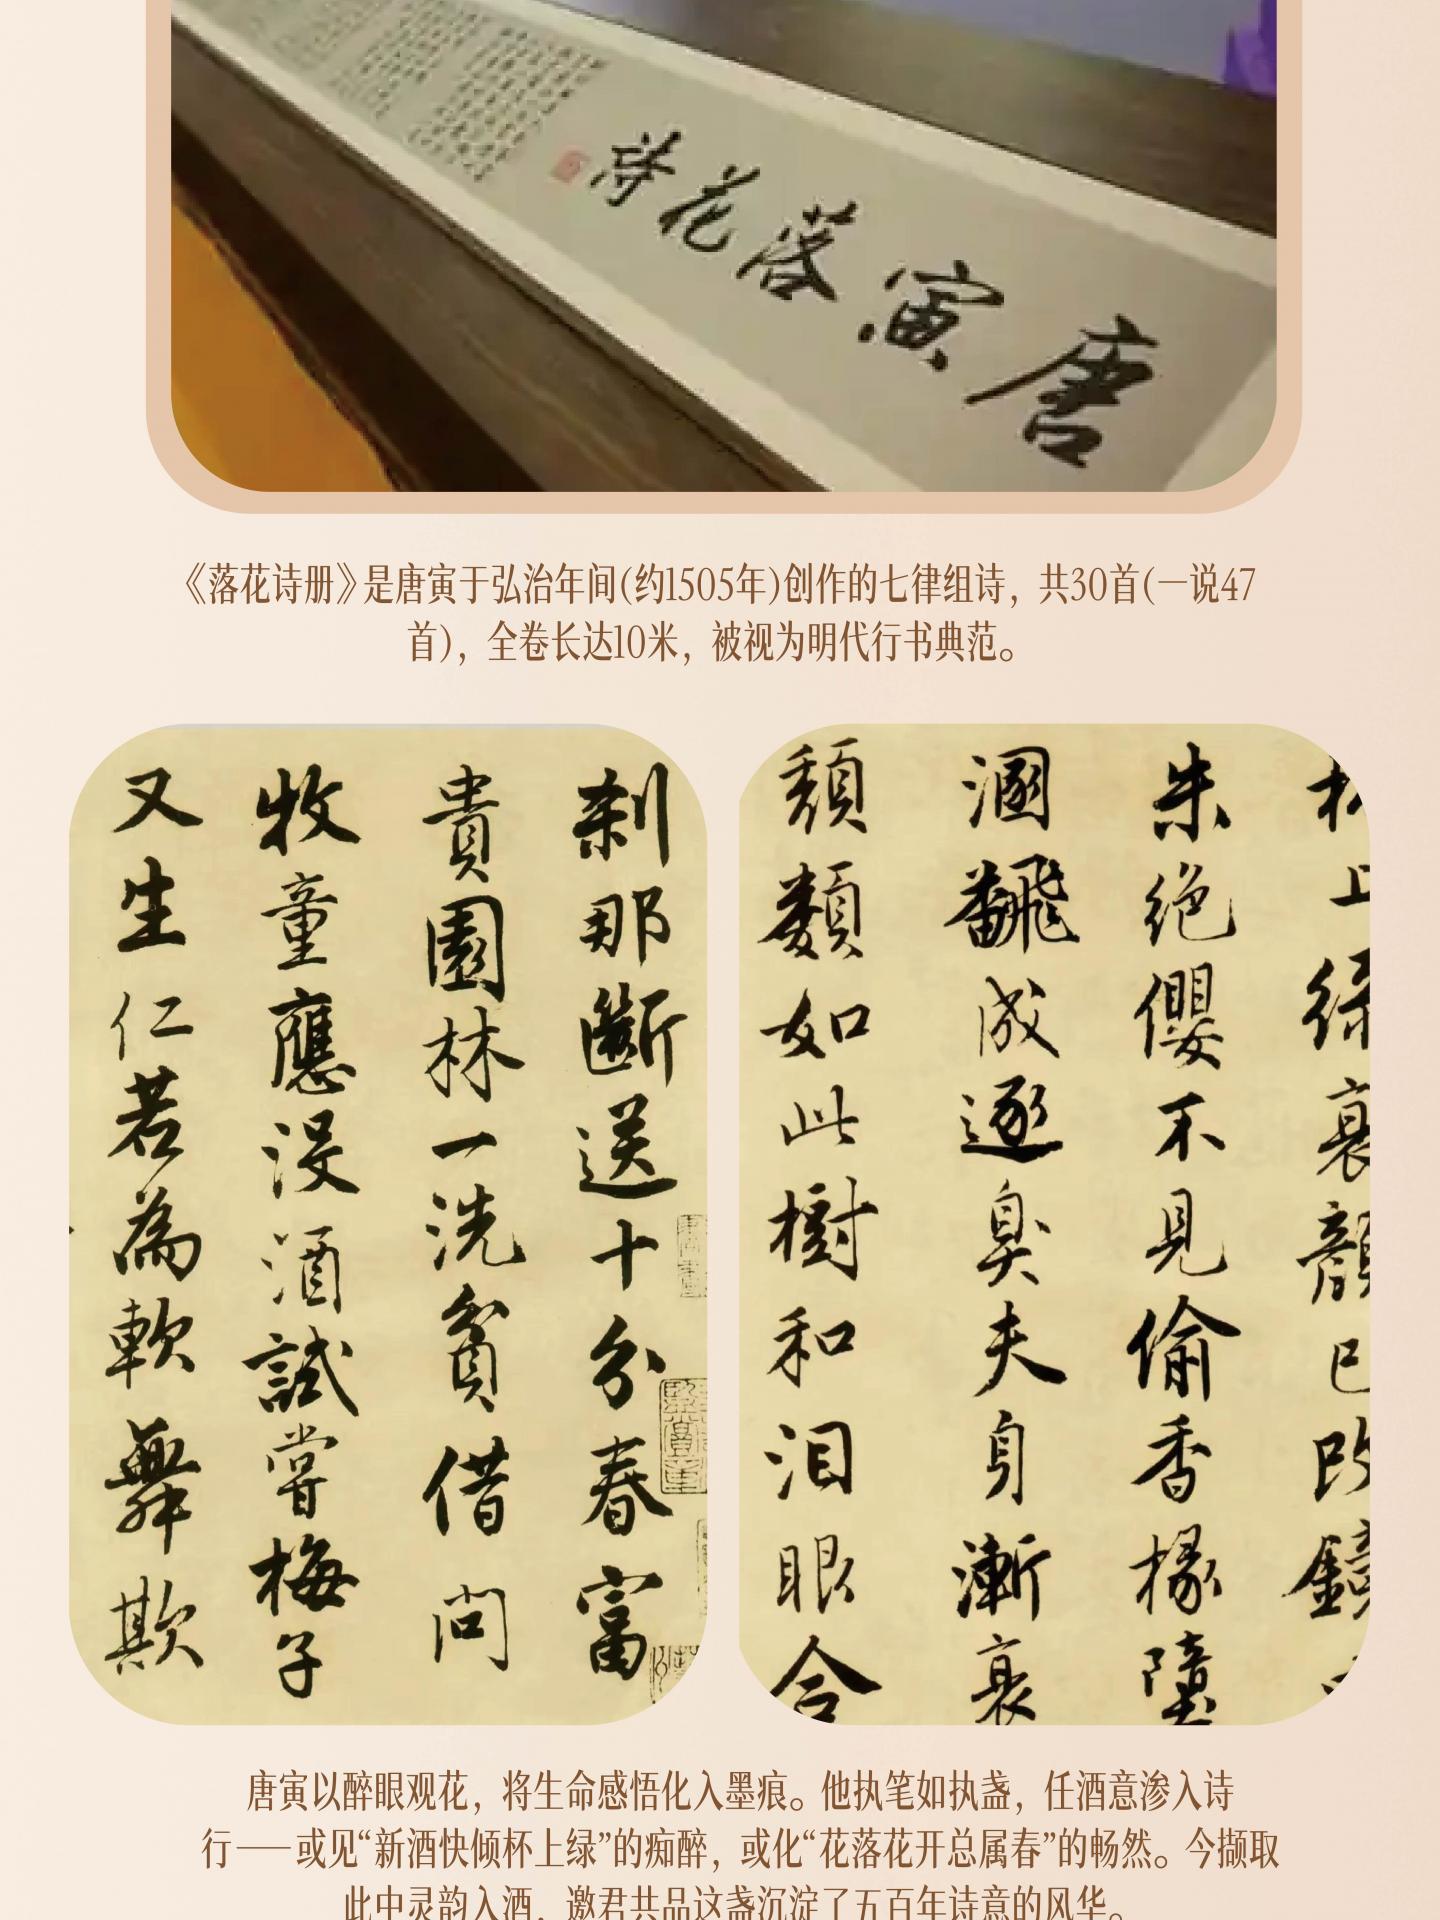 唐寅落花诗
《落花诗册》是唐寅于弘治年间(约1505年)创作的七律组诗，共30首(一说47
首)，全卷长达10米，被视为明代行书典范。
刹那斷送十分春富
貴園林一洗貧借問
牧童應沒酒試嘗梅子
又生仁若為軟舞欺
上綠衰顏已改鏡
朱絕纓不見偷香掾墮
溷飜成逐臭夫身漸衰
頹類如此樹和泪眼合
唐寅以醉眼观花，将生命感悟化入墨痕。他执笔如执盏，任酒意渗入诗
行——或见“新酒快倾杯上绿”的痴醉，或化“花落花开总属春”的畅然。今撷取
此中灵韵入酒，邀君共品这盏沉淀了五百年诗意的风华。